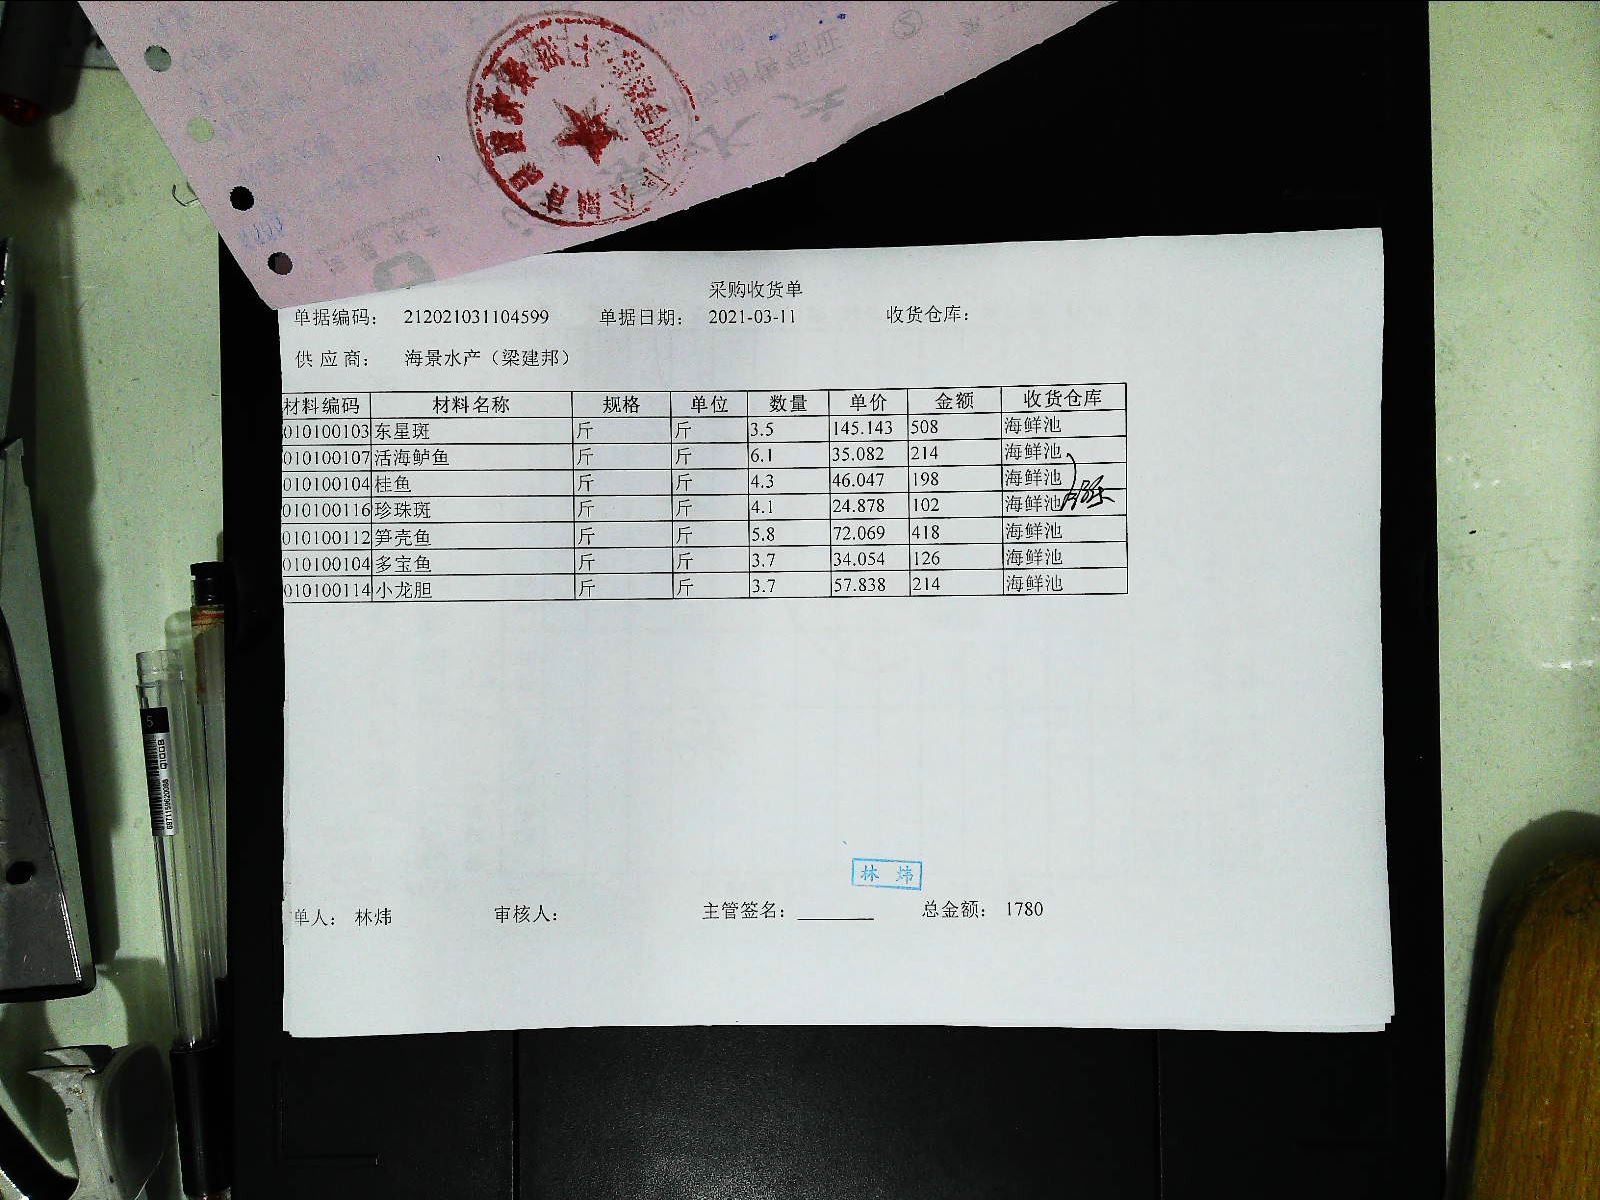 采购收货单
单据编码： 212021031104599 单据日期： 2021-03-11 收货仓库：
供应商： 海景水产（梁建邦）
材料编码 材料名称 规格 单位 数量 单价 金额 收货仓库
010100103 东星斑 斤 斤 3.5 145.143 508 海鲜池
010100107 活海鲈鱼 斤 斤 6.1 35.082 214 海鲜池
010100104 桂鱼 斤 斤 4.3 46.047 198 海鲜池
010100116 珍珠斑 斤 斤 4.1 24.878 102 海鲜池
010100112 笋壳鱼 斤 斤 5.8 72.069 418 海鲜池
010100104 多宝鱼 斤 斤 3.7 34.054 126 海鲜池
010100114 小龙胆 斤 斤 3.7 57.838 214 海鲜池
林 炜
单人： 林炜 审核人： 主管签名： 总金额： 1780
5
QI008